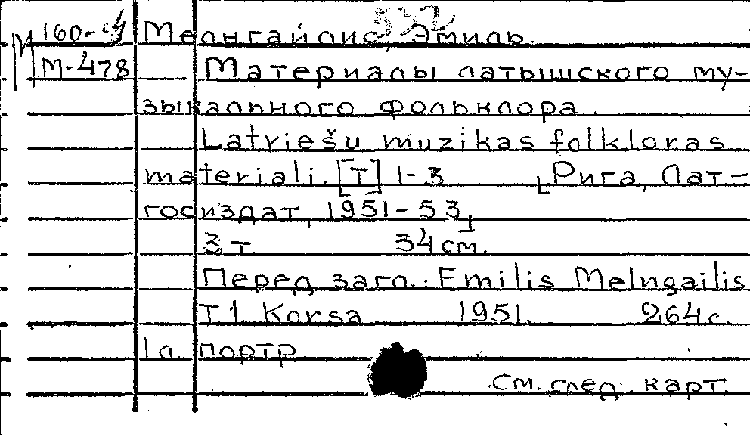 160-4 Мелнгайлис, Эмиль.
М-478 Материалы латышского му-
зыкального фольклора.
Latviešu muzikas folkloras
materiali. [Т] 1-3 [Рига, Лат-
госиздат, 1951-53]
3 т. 34 см.
Перед загл.: Emilis Melngailis
Т 1 Korsa 1951. 264 с.
1 л. портр
См. след. карт.